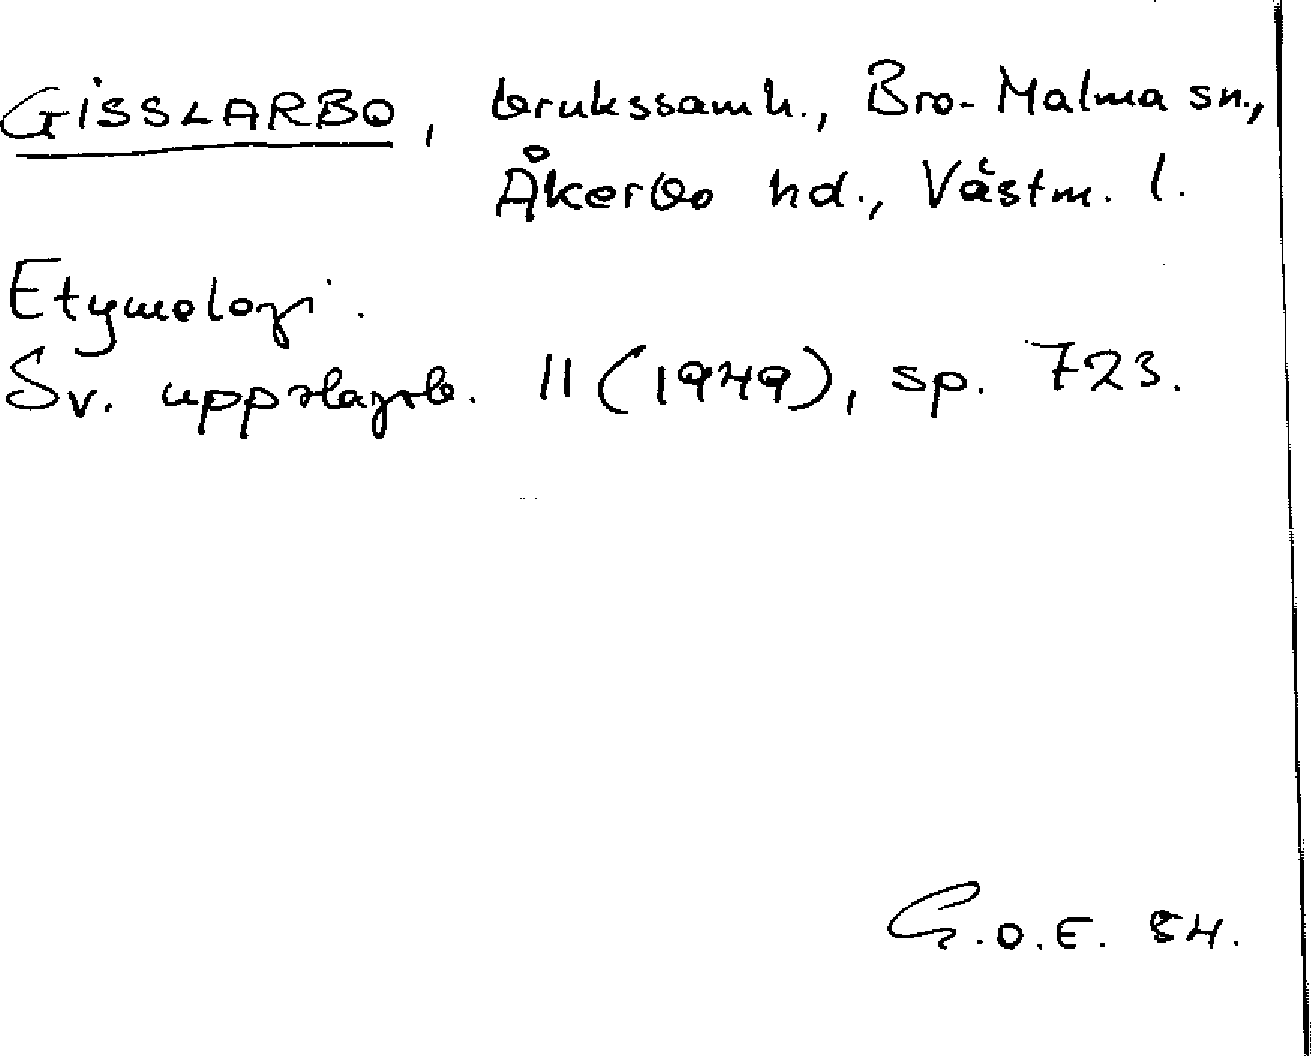 GISSLARBO, brukssamh., Bro-Malma sn.,
Åkerbo hd., Västm. l.
Etymologi.
Sv. uppslagsb. 11 (1949), sp. 723.
G.O.E. 54.